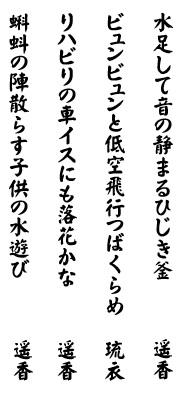 水足して音の静まるひじき釜　遥香
ビュンビュンと低空飛行つばくらめ　琉衣
リハビリの車イスにも落花かな　遥香
蝌蚪の陣散らす子供の水遊び　遥香